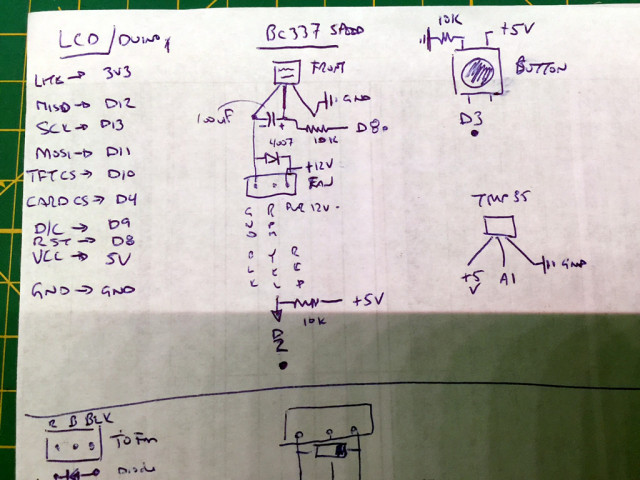 LCD / DUINO
LITE → 3V3
MISO → D12
SCK → D13
MOSI → D11
TFTCS → D10
CARDCS → D4
D/C → D9
RST → D8
VCC → 5V
GND → GND
BC337 SPEED
FRONT
GND
100uF
+
10K
D8
4007
+12V
FAN
G R PWR 12V
N P
D M
B Y R
L E E
K L D
10K
+5V
D
2
10K
+5V
BUTTON
D3
TMP35
+5
V
A1
GND
R B BLK
TO FAN
DIODE